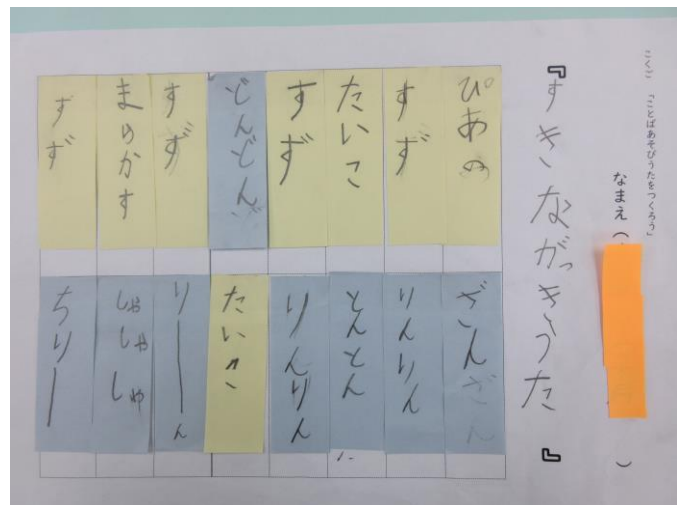 こくご 「ことばあそびうたをつくろう」
なまえ( )
『すきながっきうた』
ぴあの
ざんざん
すず
りんりん
たいこ
とんとん
すず
りんりん
どんどん
たいこ
すず
りーーん
まらかす
しゃしゃしゃ
すず
ちりーー